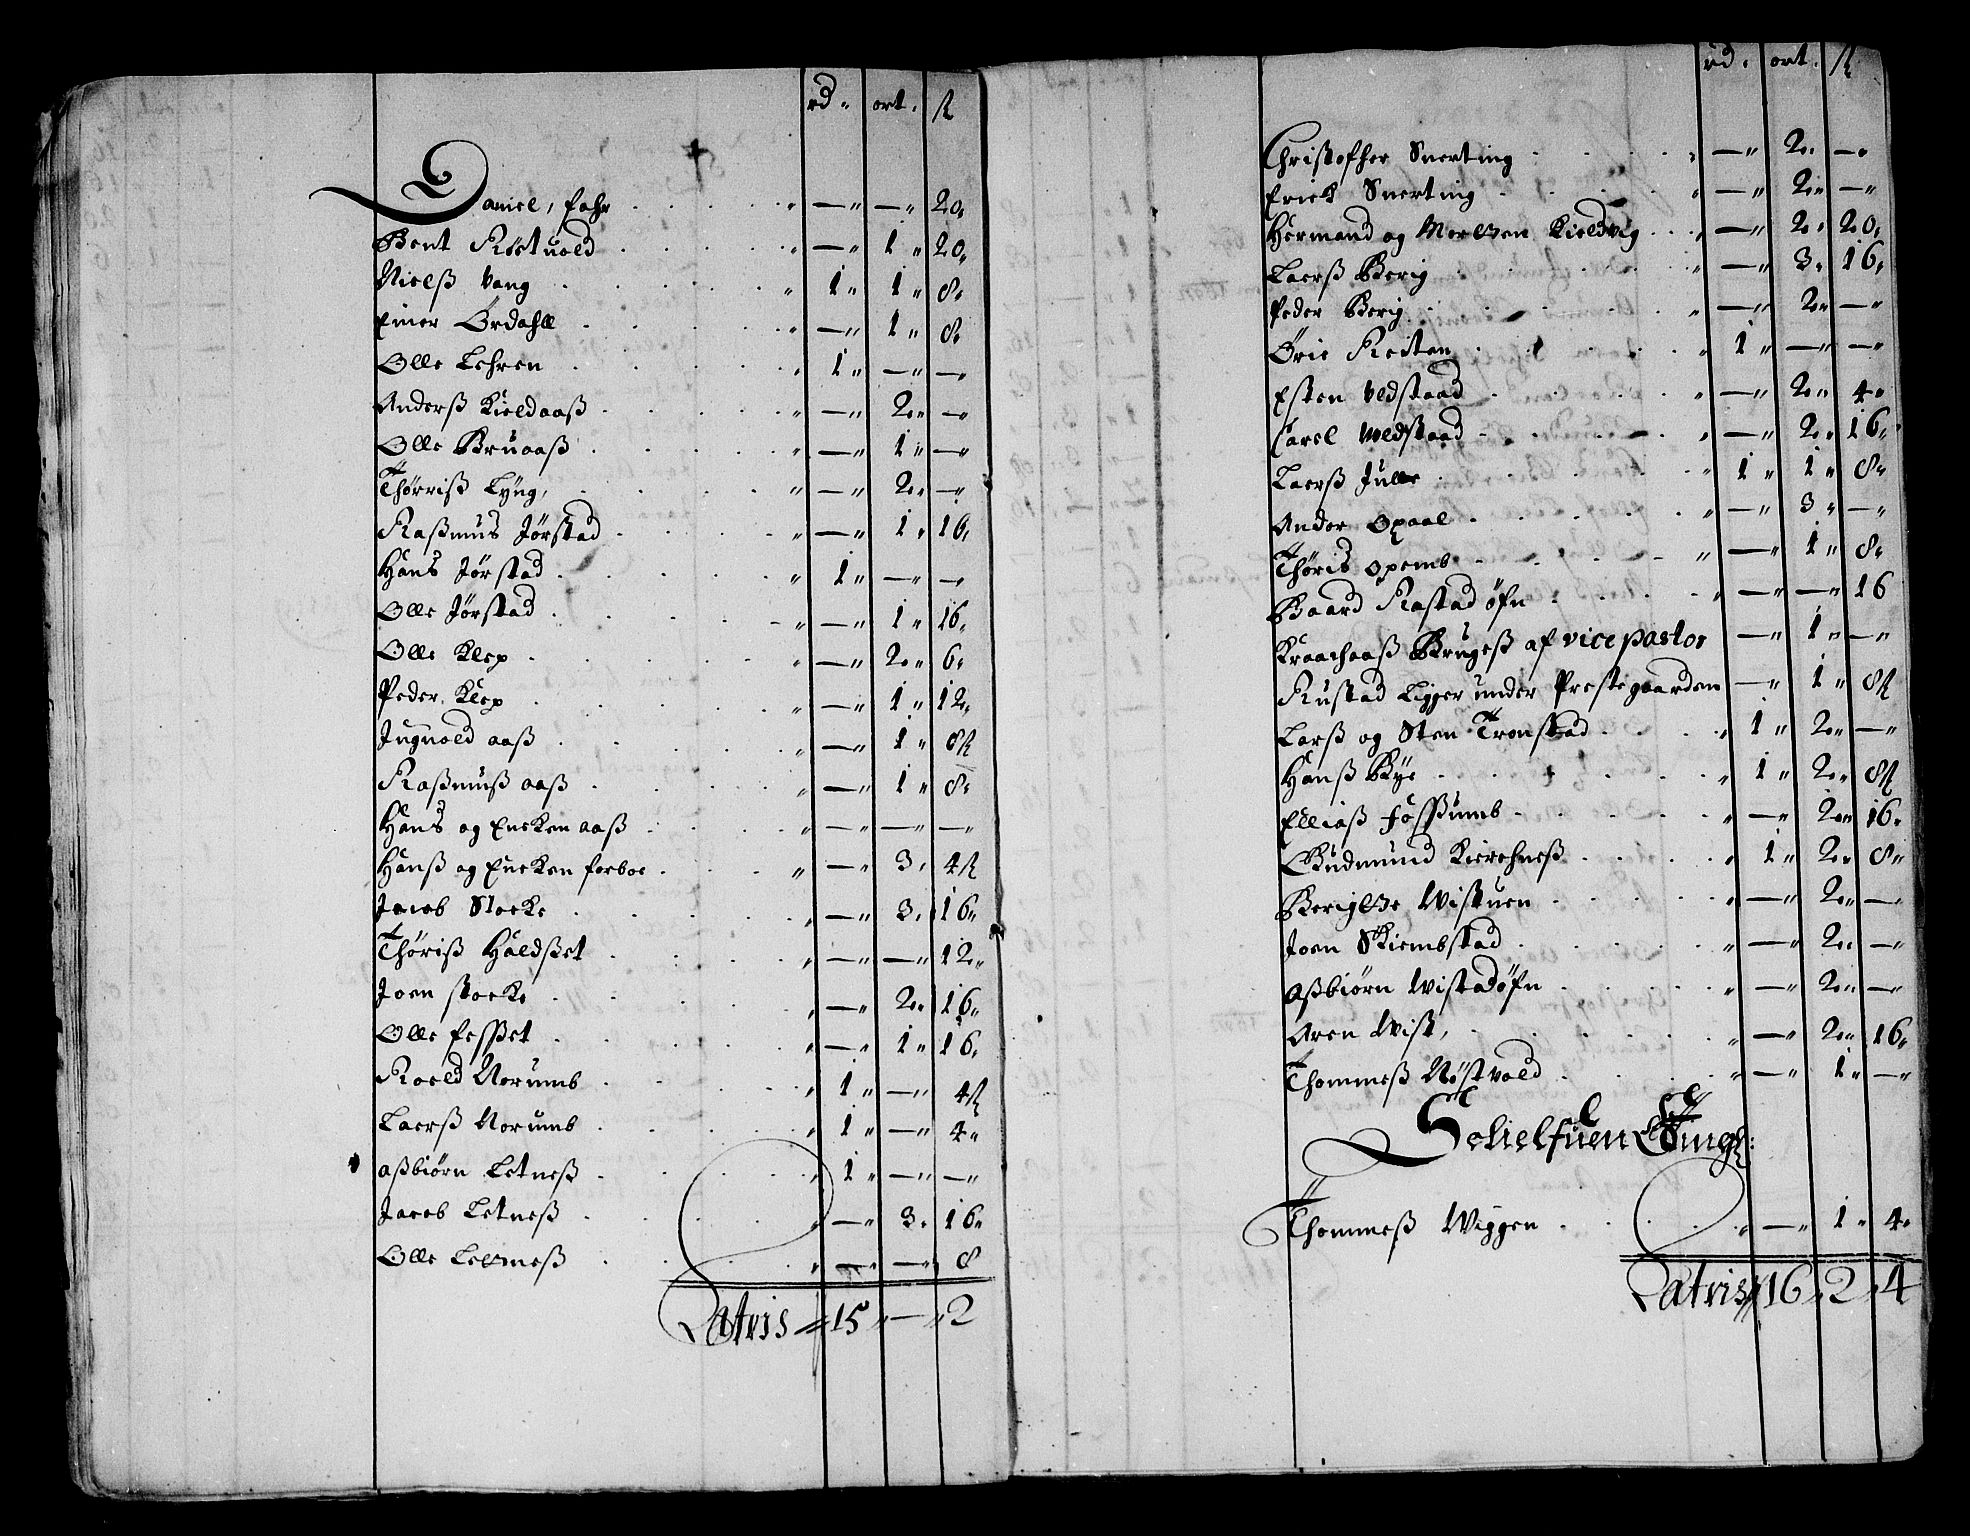 rd. ort. ß
Daniel, Fahr — — 20
Bent Røetuold — 1 20
Nielß Vang 1 1 8
Einer Ørdahll — 1 8
Olle Lehren 1 — —
Anderß Kieldaaß — 2 —
Olle Bruaaß — 1 —
Thørriß Lyng, — 2 —
Raßmus Jørstad — 1 16
Hans Jørstad 1 — —
Olle Jørstad — 1 16
Olle Klep — 2 6
Peder Klep — 1 12
Jnguold aaß — 1 8ß
Raßmuß aaß — 1 8
Hans og Encken aaß — — —
Hanß og Encken forboe — 3 4ß
Jacob Stocke — 3 16
Thøriß Haldßet — — 12
Joen stocke — 2 16
Olle Feßet — 1 16
Roeld Norumb 1 — 4ß
Laerß Norumb 1 — 4
aßbiørn Letneß 1 — —
Jacob Letneß — 3 16
Olle Letneß — — 8
Latris 15 — 2
rd. ort. ß
Christopher Snerting — 2 —
Erich Snerting — 2 —
Hermand og Morten Kieldvig — 2 20
Laerß Berig — 3 16
Peder Berig — 2 —
Øric Reiten 1 — —
Esten Vedstaad — 2 4
Carel Wedstaad — 2 16
Laerß Julle 1 1 8
Ander Opaal — 3 —
Thøris Opemb — 1 8
Baard Rastad øfn — — 16
Kraachaaß Brugeß af vice pastor — 1 —
Rustad Ligger under Prestegaarden — 1 8ß
Larß og Sten Tronstad 1 2 —
Hanß Bye 1 2 8ß
Elliaß Foßumb — 2 16
Gudmund Kircheneß 1 2 8
Berigtte Wistuen — 2 —
Joen Skiembstad — 2 —
Aßbiørn Wistadøfn — 2 —
Aren Wist, — 2 16
Thommeß Nøstvold — 1 —
Schielfuen Tingl:
Thommeß Wiggen — 1 4
Latris 16 2 4